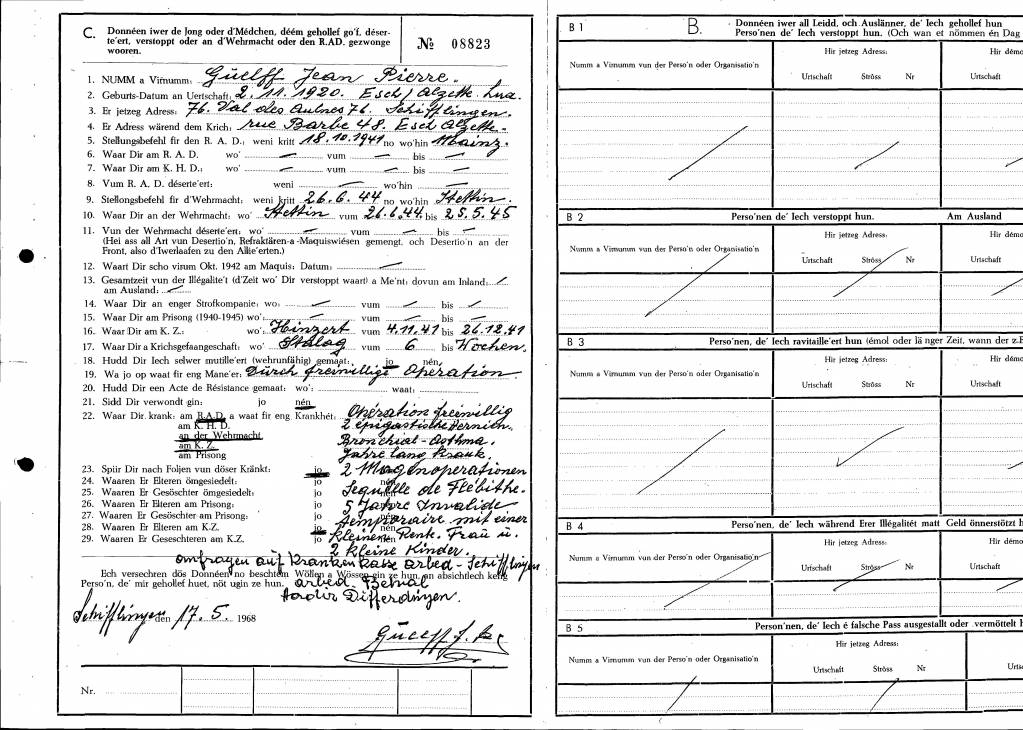 C. Donnéen iwer de Jong oder d'Mëdchen, déém gehollef go'f, déser-
te'ert, verstoppt oder an d'Wehrmacht oder den R.AD. gezwonge
wooren.
№ 08823
1. NUMM a Virnumm: Guelff Jean Pierre.
2. Geburts-Datum an Uertschaft: 2.11.1920. Esch/Alzette. Lux.
3. Er jetzeg Adress: 76. Val des Aulnes 76. Schifflingen.
4. Er Adress wärend dem Krich: rue Barbe 48. Esch Alzette.
5. Stellongsbefehl fir den R. A. D.: weni kritt 18.10.1941 no wo'hin Mainz.
6. Waar Dir am R. A. D. wo' — vum — bis —
7. Waar Dir am K. H. D.: wo' — vum — bis —
8. Vum R. A. D. déserte'ert: weni — wo'hin —
9. Stellongsbefehl fir d'Wehrmacht: weni kritt 26.6.44 no wo'hin Stettin.
10. Waar Dir an der Wehrmacht: wo' Stettin vum 26.6.44 bis 25.5.45
11. Vun der Wehrmacht déserte'ert: wo' — vum — bis —
(Hei ass all Art vun Desertio'n, Refraktären-a -Maquiswiésen gemengt, och Desertio'n an der
Front, also d'Iwerlaafen zu den Allie'erten.)
12. Waart Dir scho virum Okt. 1942 am Maquis: Datum: —
13. Gesamtzeit vun der Illégalite't (d'Zeit wo' Dir verstoppt waart) a Me'nt: dovun am Inland: —
am Ausland: —
14. Waar Dir an enger Strofkompanie: wo: — vum — bis —
15. Waar Dir am Prisong (1940-1945) wo': — vum — bis —
16. Waar Dir am K. Z.: wo': Hinzert vum 4.11.41 bis 26.12.41
17. Waar Dir a Krichsgefaangeschaft: wo' Stalag vum 6 bis Wochen.
18. Hudd Dir Iech selwer mutille'ert (wehrunfähig) gemaat: jo nén
19. Wa jo op waat fir eng Mane'er: Durch freiwillige Operation.
20. Hudd Dir een Acte de Résistance gemaat: wo': waat:
21. Sidd Dir verwondt gin: jo nén
22. Waar Dir krank: am R.A.D. a waat fir eng Krankhét: Opération freiwillig
am K. H. D. 2 épigastische Hernien.
an der Wehrmacht Bronchial-Asthma.
am K. Z. Jahre lang krank.
am Prisong
23. Spür Dir nach Foljen vun döser Kränkt: jo 2 Magenoperationen
24. Waaren Er Elteren ömgesiedelt: jo nén
25. Waaren Er Gesöschter ömgesiedelt: jo Sequelle de Flébithe.
26. Waaren Er Elteren am Prisong: jo 5 Jahre Invalide
27. Waaren Er Gesöschter am Prisong: jo nén
28. Waaren Er Elteren am K.Z. jo nén temporaire mit einer
29. Waaren Er Geseschteren am K.Z. jo nén kleinen Rent. Frau u.
2 kleine Kinder.
Omfragen auf Krankenkasse Arbed - Schifflingen
Ech versechren dös Donnéen no beschtem Wöllen a Wössen gin ze hun, an absichtlech keng
Perso'n, de' mir gehollef huet, nöt ugin ze hun. Arbed. Belval
Hadir Differdingen.
Schifflingen den 17. 5. 1968
Guelff J. P.
Nr.
B 1
B.
Donnéen iwer all Leidd, och Auslänner, de' Iech gehollef hun
Perso'nen de' Iech verstoppt hun. (Och wan et nömmen én Dag
Hir jetzeg Adress:
Hir démo
Numm a Virnumm vun der Perso'n oder Organisatio'n
Urtschaft Ströss Nr
Urtschaft
B 2
Perso'nen de' Iech verstoppt hun.
Am Ausland
Hir jetzeg Adress:
Hir démo
Numm a Virnumm vun der Perso'n oder Organisatio'n
Urtschaft Ströss Nr
Urtschaft
B 3
Perso'nen, de' Iech ravitaille'ert hun (émol oder länger Zeit, wann der z.B
Hir jetzeg Adress:
Hir démo
Numm a Virnumm vun der Perso'n oder Organisatio'n
Urtschaft Ströss Nr
Urtschaft
B 4
Perso'nen, de' Iech während Erer Illégalitét matt Geld önnerstötzt h
Hir jetzeg Adress:
Hir démo
Numm a Virnumm vun der Perso'n oder Organisatio'n
Urtschaft Ströss Nr
Urtschaft
B 5
Person'nen, de' Iech é falsche Pass ausgestallt oder vermöttelt h
Hir jetzeg Adress:
Numm a Virnumm vun der Perso'n oder Organisatio'n
Urtschaft Ströss Nr
Urts